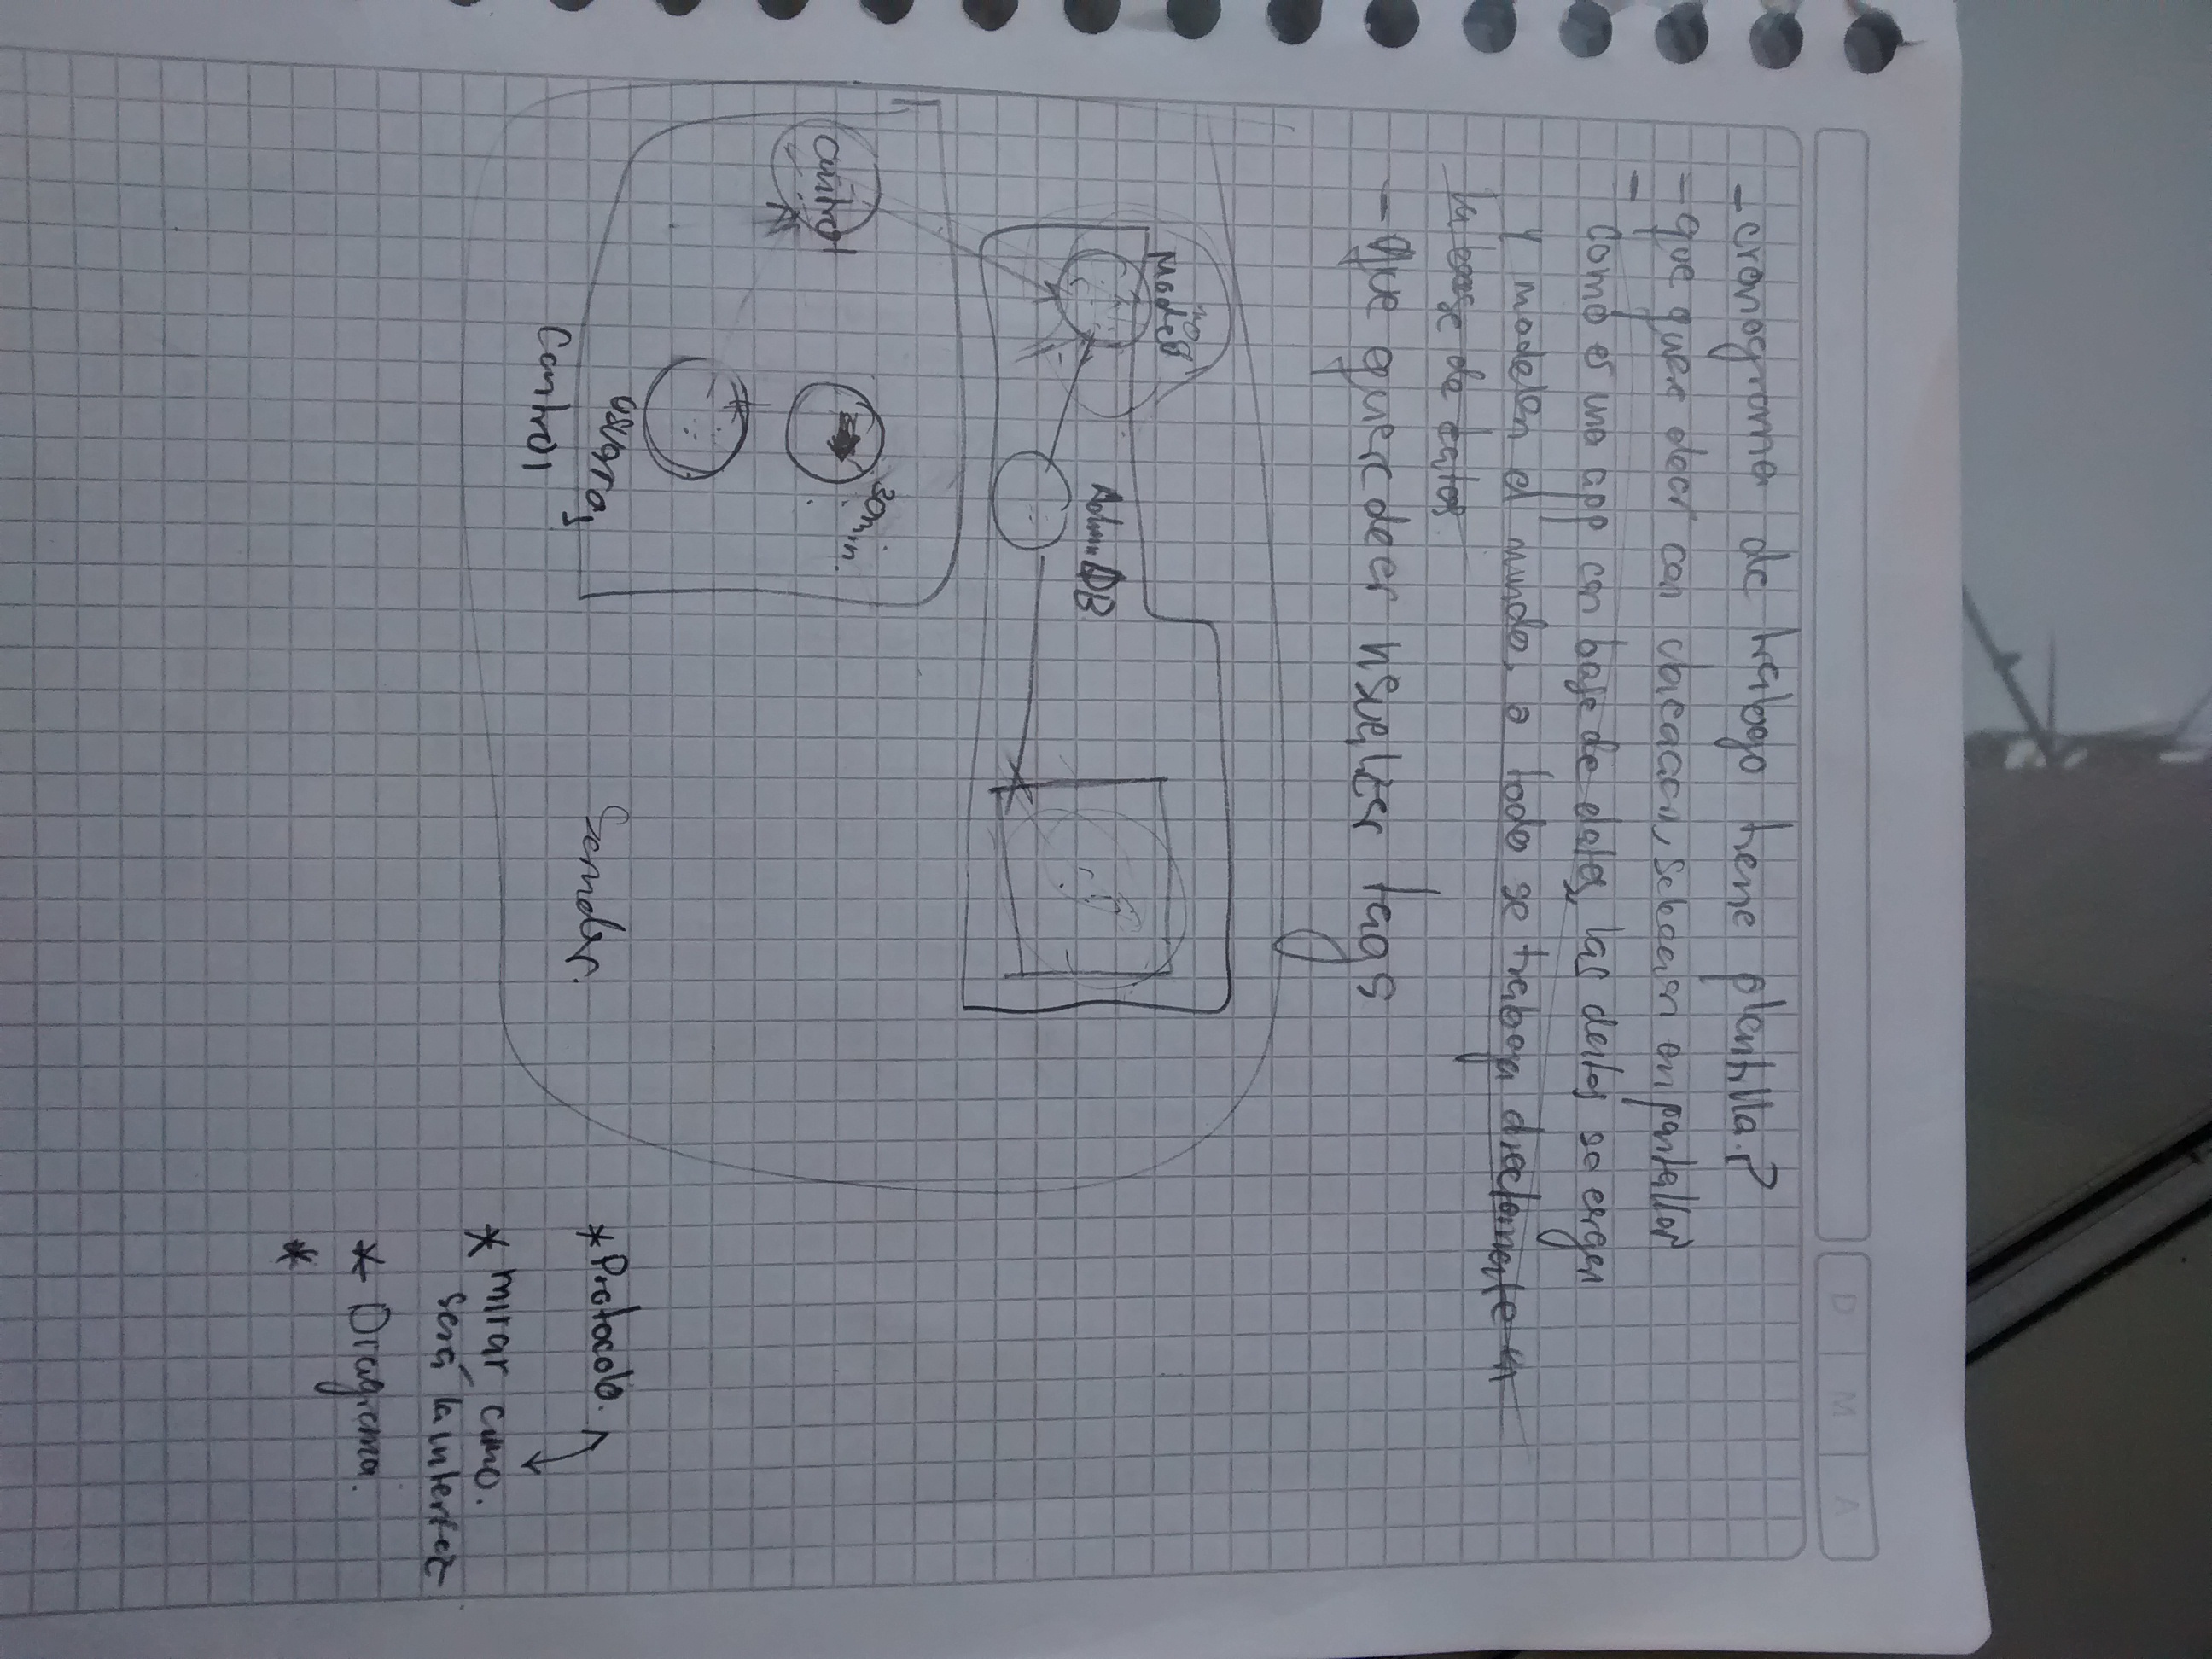 - cronograma de trabajo tiene plantilla?
- que quere decir con ubicacion, seleccion en pantalla
-
como es una app con base de datos, los datos se cargan
y modelan el mundo, o todo se trabaja directamente en
la base de datos
- Que quiere decir resuelver tags
Modelo
AdminDB
control
30min.
usuario
Control
Servidor.
* Protocolo.
* mirar como.
será la interfaz
* Diagrama.
*
D M A